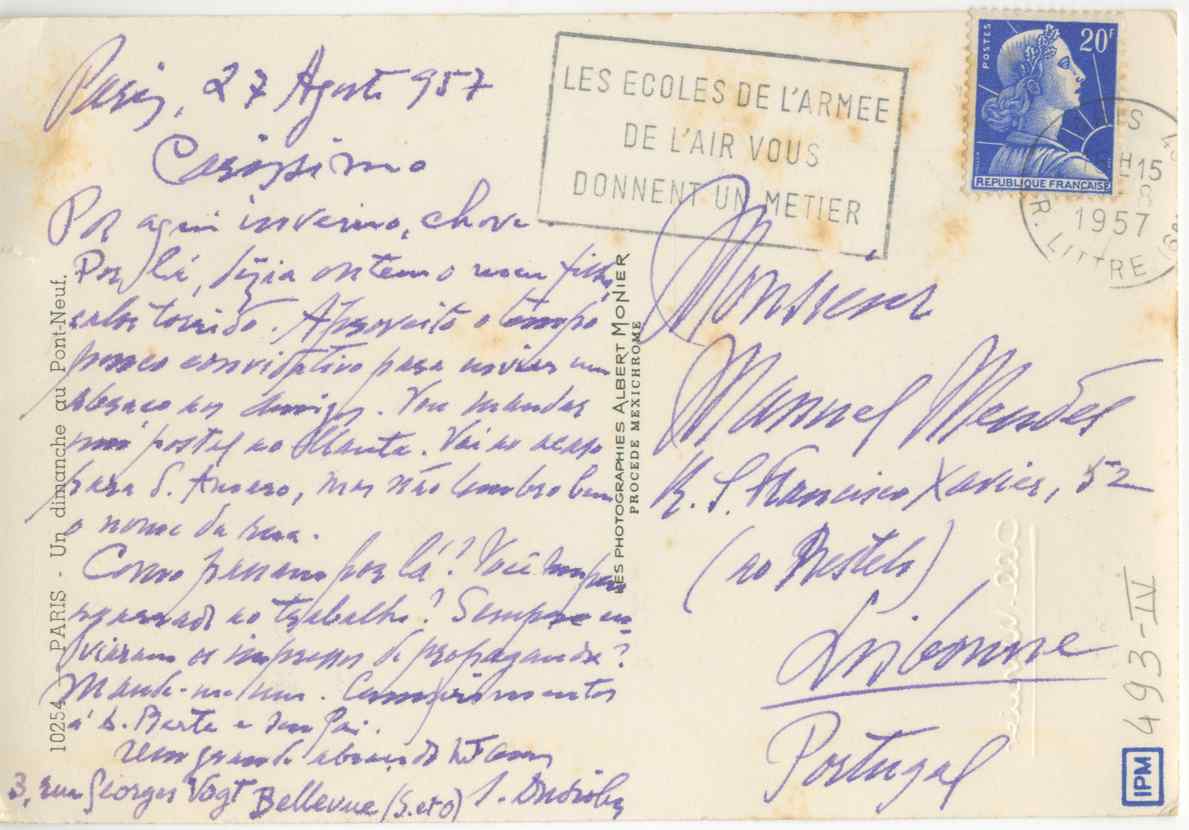 Paris, 27 Agosto 957
Caríssimo
Por aqui inverno, chove.
Por lá, dizia ontem o meu filho,
calor torrido. Aproveito o tempo
pouco convidativo para enviar um
abraço aos amigos. Vou mandar
um postal ao. Vai ao acaso
para S. Amaro, mas não lembro bem
o nome da rua.
Como passam por lá? Você sempre
agarrado ao trabalho? Sempre en-
viaram os impressos de propaganda?
Mande-me um. Cumprimentos
á D. Berta e seu Pai.
e um grande abraço do
3, rue Georges Vogt Bellevue (S. et O)
LES ECOLES DE L'ARMEE
DE L'AIR VOUS
DONNENT UN METIER
POSTES
20F
REPUBLIQUE FRANÇAISE
H15
8
1957
R. LITTRE
Monsieur
Manuel Mendes
R. S. Francisco Xavier, 52
(ao Restelo)
Lisbonne
Portugal
10254 - PARIS - Un dimanche au Pont-Neuf.
LES PHOTOGRAPHIES ALBERT MONIER
PROCEDE MEXICHROME
493-IV
IPM